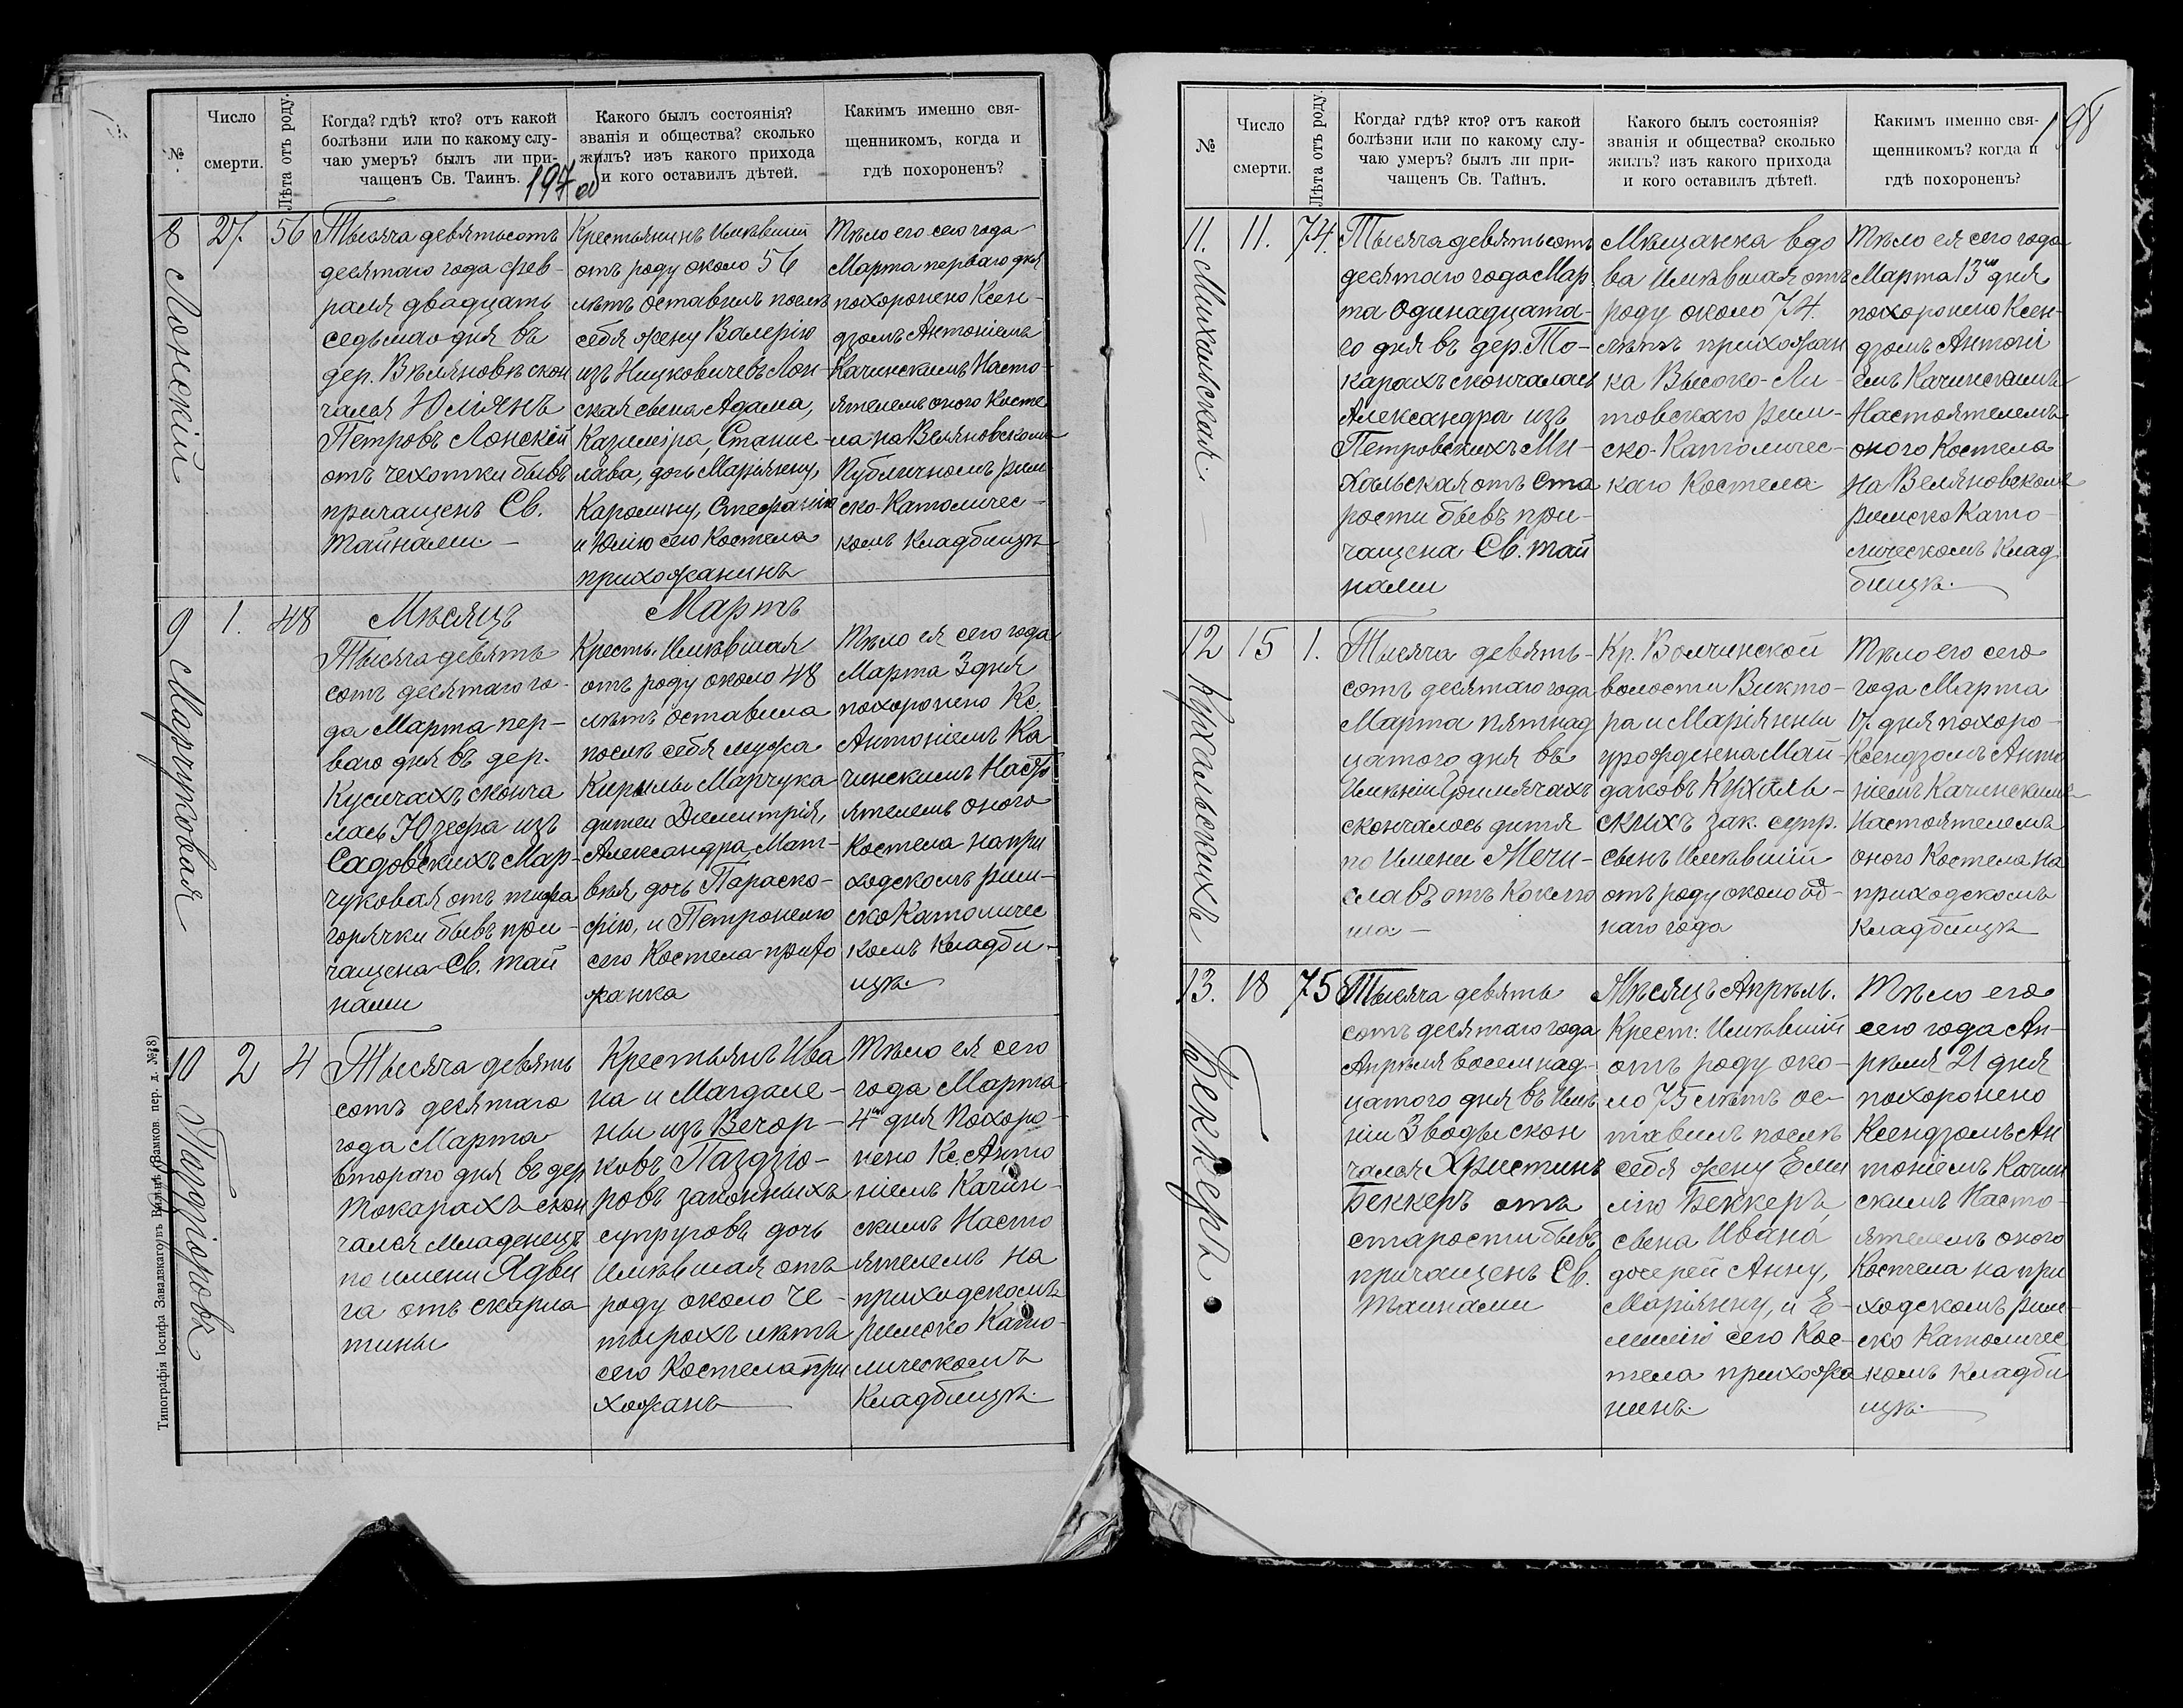 197 об
№
Число
смерти.
Лѣта отъ роду.
Когда? гдѣ? кто? отъ какой
болѣзни или по какому слу-
чаю умеръ? былъ ли при-
чащенъ Св. Таинъ.
Какого былъ состоянія?
званія и общества? сколько
жилъ? изъ какого прихода
и кого оставилъ дѣтей.
Каким именно свя-
щенникомъ, когда и
гдѣ похороненъ?
8
Лонскій
27.
56
Тысяча девятьсотъ
десятаго года фев-
раля двадцать
седьмаго дня въ
дер. Вѣляновѣ скон
чался Юліянъ
Петровъ Лонскій
отъ чехотки бывъ
причащенъ Св.
Тайнами. —
Крестьянинъ имѣвшій
отъ роду около 56
лѣтъ оставилъ послѣ
себя жену Валерію
изъ Ницковичевъ Лон-
ская сына Адама,
Казиміра, Станис-
лава, дочь Маріянну,
Каролину, Стефанію
и Юлію сего Костела
прихожанинъ
Тѣло его сего года
Марта перваго дня
похоронено Ксен-
дзомъ Антоніемъ
Качинскимъ Насто-
ятелемъ оного Косте
ла на Веляновскомъ
Публичномъ рим
ско-Католичес-
комъ Кладбищѣ
Мѣсяцъ Мартъ
9
Марчуковая
1.
48
Тысяча девять
сотъ десятаго го-
да Марта пер-
ваго дня въ дер.
Кусичахъ сконча
лась Юзефа изъ
Садовскихъ Мар-
чуковая отъ тифа
горячки бывъ при-
чащена Св. Тай
нами
Кресть. Имѣвшая
отъ роду около 48
лѣтъ оставила
послѣ себя мужа
Кирылы Марчука
дитеи Димитрія,
Александра, Мат-
вѣя, дочь Параско-
фію, и Петронелю
сего Костела прихо
жанка
Тѣло ея сего года
Марта 3 дня
похоронено Кс.
Антоніемъ Ка
чинскимъ Насто
ятелемъ оного
Костела на при
ходскомъ рим-
ско Католичес
комъ Кладби-
щѣ.
10
Паздзіоровъ
2
4
Тысяча девять
сотъ десятаго
года Марта
второго дня въ дер
Токарахъ скон
чался Младенецъ
по имени Ядви
га отъ скарла-
тины
Крестьянъ Ива
на и Магдале-
ны изъ Вечор-
ковъ Паздзіо-
ровъ законныхъ
супруговъ дочь
имѣвшая отъ
роду около че-
тырохъ лѣтъ
сего Костела при
хожанъ
Тѣло ея сего
года Марта
4го дня похоро-
нено Кс. Анто
ніемъ Качин-
скимъ Насто
ятелемъ на
приходскомъ
римско Като-
лическомъ
Кладбищѣ.
Типографія Іосифа Завадзкаго въ Вильнѣ (Замков. пер. д. № 8)
198
№
Число
смерти.
Лѣта отъ роду.
Когда? гдѣ? кто? отъ какой
болѣзни или по какому слу-
чаю умеръ? былъ ли при-
чащенъ Св. Тайнъ.
Какого былъ состоянія?
званія и общества? сколько
жилъ? изъ какого прихода
и кого оставилъ дѣтей.
Какимъ именно свя-
щенникомъ? когда и
гдѣ похороненъ?
11.
Михальская.
11.
74.
Тысяча девятьсотъ
десятаго года Мар
та одинадцата-
го дня въ дер. То-
карахъ скончалась
Александра изъ
Петровскихъ Ми-
хальская отъ ста
рости бывъ при-
чащена Св. тай
нами
Мѣщанка вдо
ва имѣвшая отъ
роду около 74.
лѣтъ прихожан
ка Высоко-Ли-
товскаго рим-
ско-Католичес-
каго Костела.
Тѣло ея сего года
Марта 13го дня
похоронено Ксен-
дзомъ Антоні
емъ Качинскимъ
Настоятелемъ
оного Костела
на Веляновскомъ
римско Като-
лическомъ клад
бищѣ.
12
Кухальскихъ
15
1.
Тысяча девять-
сотъ десятаго года
Марта пятнад
цатого дня въ
Имѣніи Гримячахъ
скончалось дитя
по Имени Мечи-
славъ отъ Коклю
ша. —
Кр. Волчинской
волости Викто-
ра и Маріянны
урожденна Май-
даковъ Кухаль-
скихъ зак. супр.
сынъ имѣвшій
отъ роду около од-
наго года
Тѣло его сего
года Марта
17. дня похоро-
Ксендзомъ Анто
ніемъ Качинскимъ
Настоятелемъ
оного Костела на
приходскомъ
Кладбищѣ
13.
Беккеръ.
18
75
Тысяча девять
сотъ десятаго года
Апрѣля восемнад-
цатого дня въ имѣ
ніи Зводы скон
чался Христинъ
Беккеръ отъ
старости бывъ
причащенъ Св.
Таинами
Мѣсяцъ Апрѣль.
Крест: Имѣвшій
отъ роду око-
ло 75 лѣтъ ос-
тавилъ послѣ
себя жену Еми
лію Беккеръ,
сына Ивана
дочерей Анну,
Маріянну, и Е-
милію сего Кос-
тела прихожа
нинъ.
Тѣло его
сего года Ап-
рѣля 21 дня
похоронено
Ксендзомъ Ан
тоніемъ Качин
скимъ Насто-
ятелемъ оного
Костела на при
ходскомъ рим-
ско Католичес
комъ Кладби
щѣ.